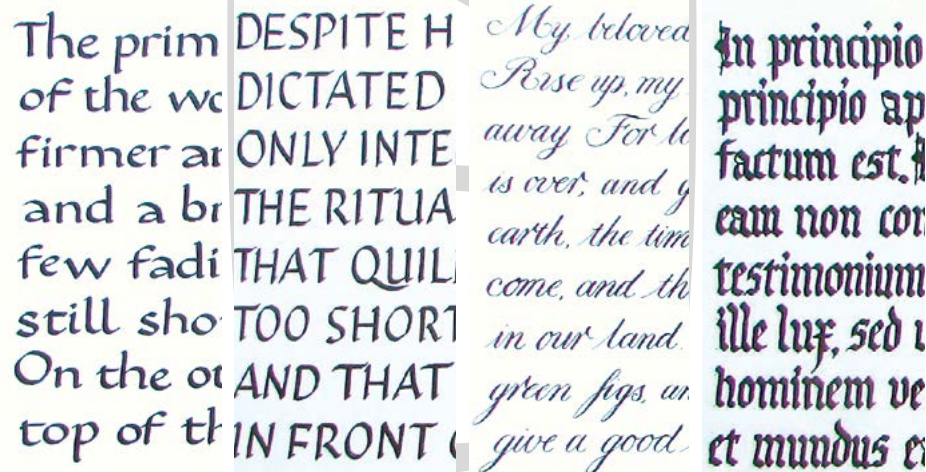 The prim
of the wo
firmer ar
and a br
few fadi
still sho
On the ot
top of th
DESPITE H
DICTATED
ONLY INTE
THE RITUA
THAT QUIL
TOO SHORT
AND THAT
IN FRONT
My beloved
Rise up, my
away For lo
is over, and
earth, the tim
come, and th
in our land.
green figs, an
give a good
In principio
principio ap
factum est.
eam non con
testimonium
ille lux, sed
hominem ve
et mundus e